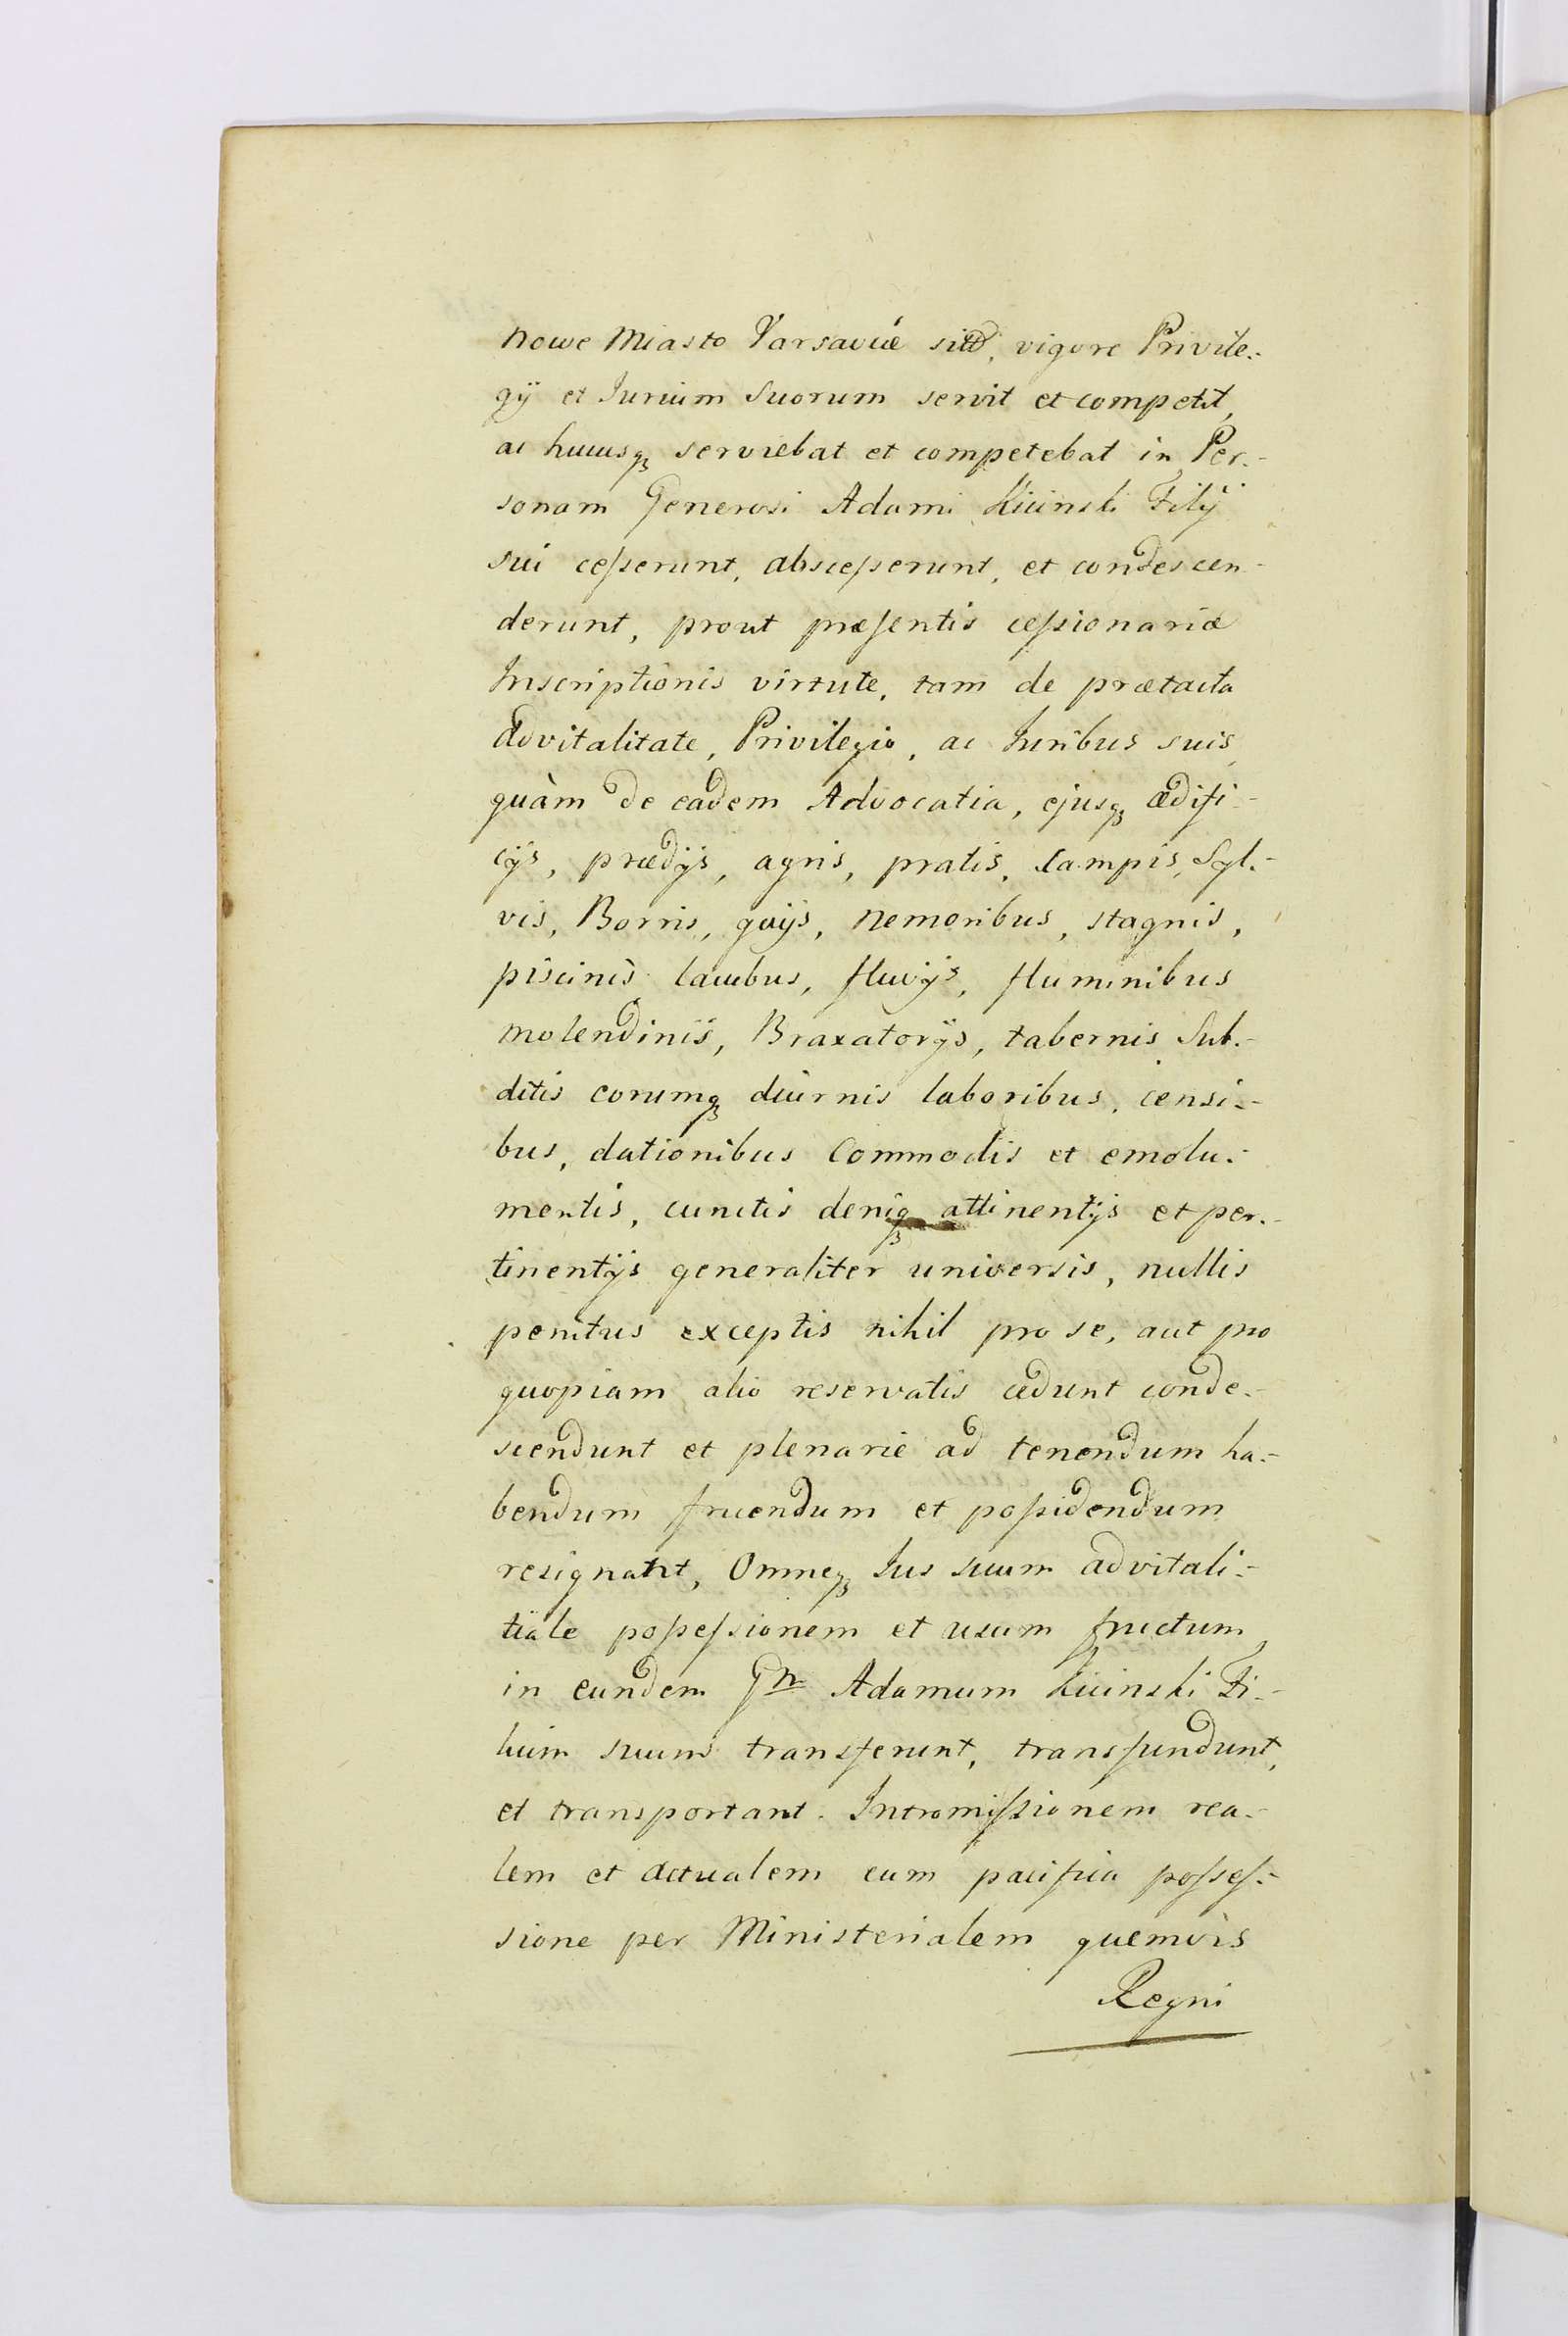 Nowe Miasto Varsaviæ sitâ, vigore Privile-
gÿ et Jurium Suorum servit et competit,
ac hucusqꝫ serviebat et competebat in Per-
sonam Generosi Adami Kicinski Filÿ
sui ceſserunt, absceſserunt, et condescen-
derunt, prout præſentis ceſsionariæ
Inscriptionis virtute, tam de prætacta
Advitalitate, Privilegio, ac Juribus suis,
quàm de eadem Advocatia, ejusqꝫ ædifi-
cÿs, prædÿs, agris, pratis, campis, Syl-
vis, Borris, gaÿs, Nemoribus, stagnis,
piscinis lacubus, fluvÿs, fluminibus
molendinis, Braxatorÿs, tabernis Sub-
ditis eorumqꝫ diurnis laboribus, censi-
bus, dationibus Commodis et emolu-
mentis, cunctis deniqꝫ attinentÿs et per-
tinentÿs generaliter universis, nullis
penitus exceptis nihil pro se, aut pro
quopiam alio reservatis cedunt conde-
scendunt et plenarie ad tenendum ha-
bendum fruendum et poſsidendum
resignant, Omneqꝫ Jus suum advitali-
tiale poſseſsionem et usum fructum,
in eundem Gn Adamum Kicinski Fi-
lium suum transferunt, transfundunt,
et transportant. Intromiſsionem rea-
lem et actualem cum pacifica poſseſ-
sione per Ministerialem quemvis
Regni